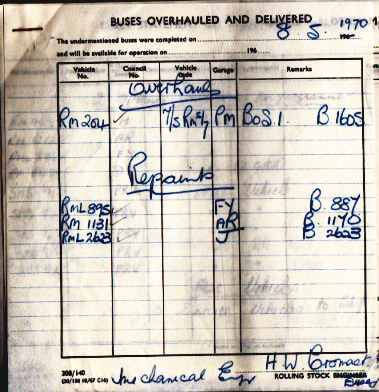 BUSES OVERHAULED AND DELIVERED
The undermentioned buses were completed on 8 5 1970
and will be available for operation on 196
Vehicle No. Council No. Vehicle Code Garage Remarks
Overhauls
RM 204 PM BOS. 1. B 1605
Repaints
RML 895 FY B. 887
RM 1131 AR B 1170
RML 2623 J B 2623
Mechanical Eng H W
ROLLING STOCK ENGINEER